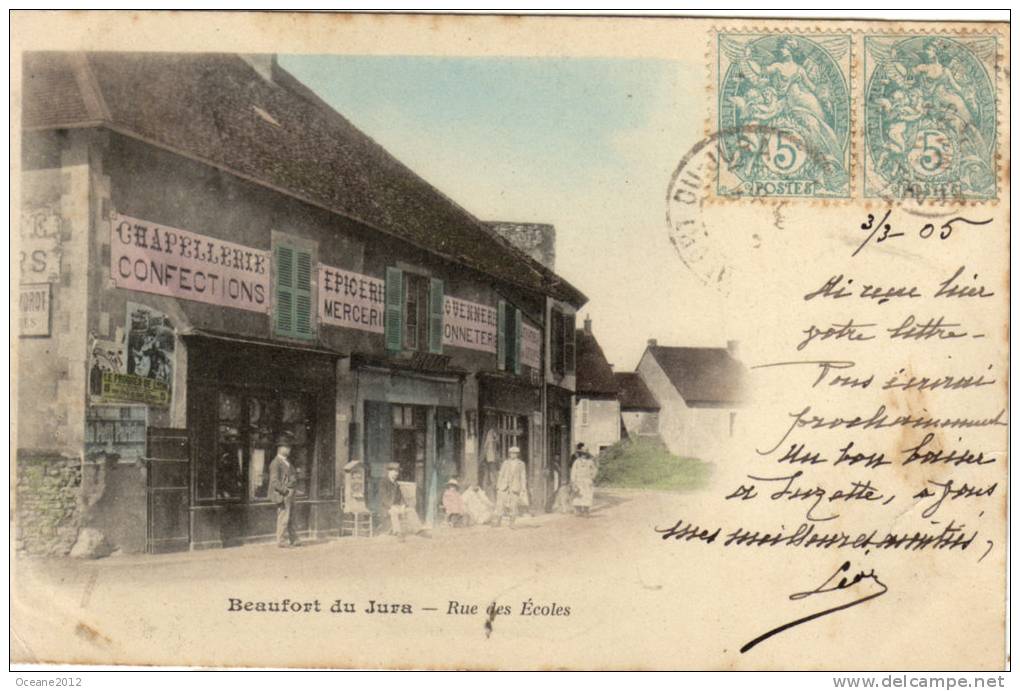 CHAPELLERIE
CONFECTIONS
EPICERIE
MERCERIE
OUENNERIE
ONNETERIE
LE PROGRES DE LYON
5
POSTES
5
POSTES
3/3 - 05
Ai reçu hier
votre lettre -
Vous écrirai
prochainement
Un bon baiser
à Suzette, à vous
mes meilleures amitiés,
Beaufort du Jura — Rue des Écoles
Oceane2012
www.delcampe.net